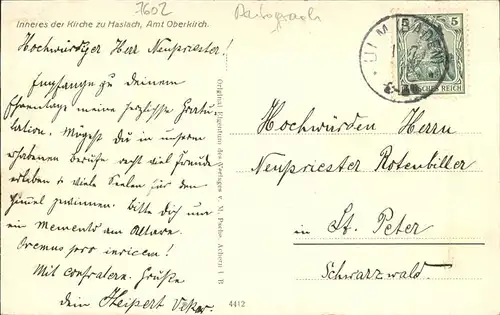 7602
Photograph
Inneres der Kirche zu Haslach, Amt Oberkirch.
Hochwürdiger Herr Neupriester!
Empfange zu Deinem
Ehrentage meine herzlichste Gratu-
lation. Mögest Du in unserem
erhabenen Berufe recht viel Freude
erleben & viele Seelen für den
Himel gewinnen. Bitte Dich um
ein Memento am Altare.
Oremus pro invicem!
Mit confratern. Grüße
Dein Heisert Vikar.
Original Eigentum des Verlages v. M. Puchs, Achern i. B.
4412
ULM (BADEN)
5 5
DEUTSCHES REICH
Hochwürden Herrn
Neupriester Rotenbiller
in St. Peter
Schwarzwald.